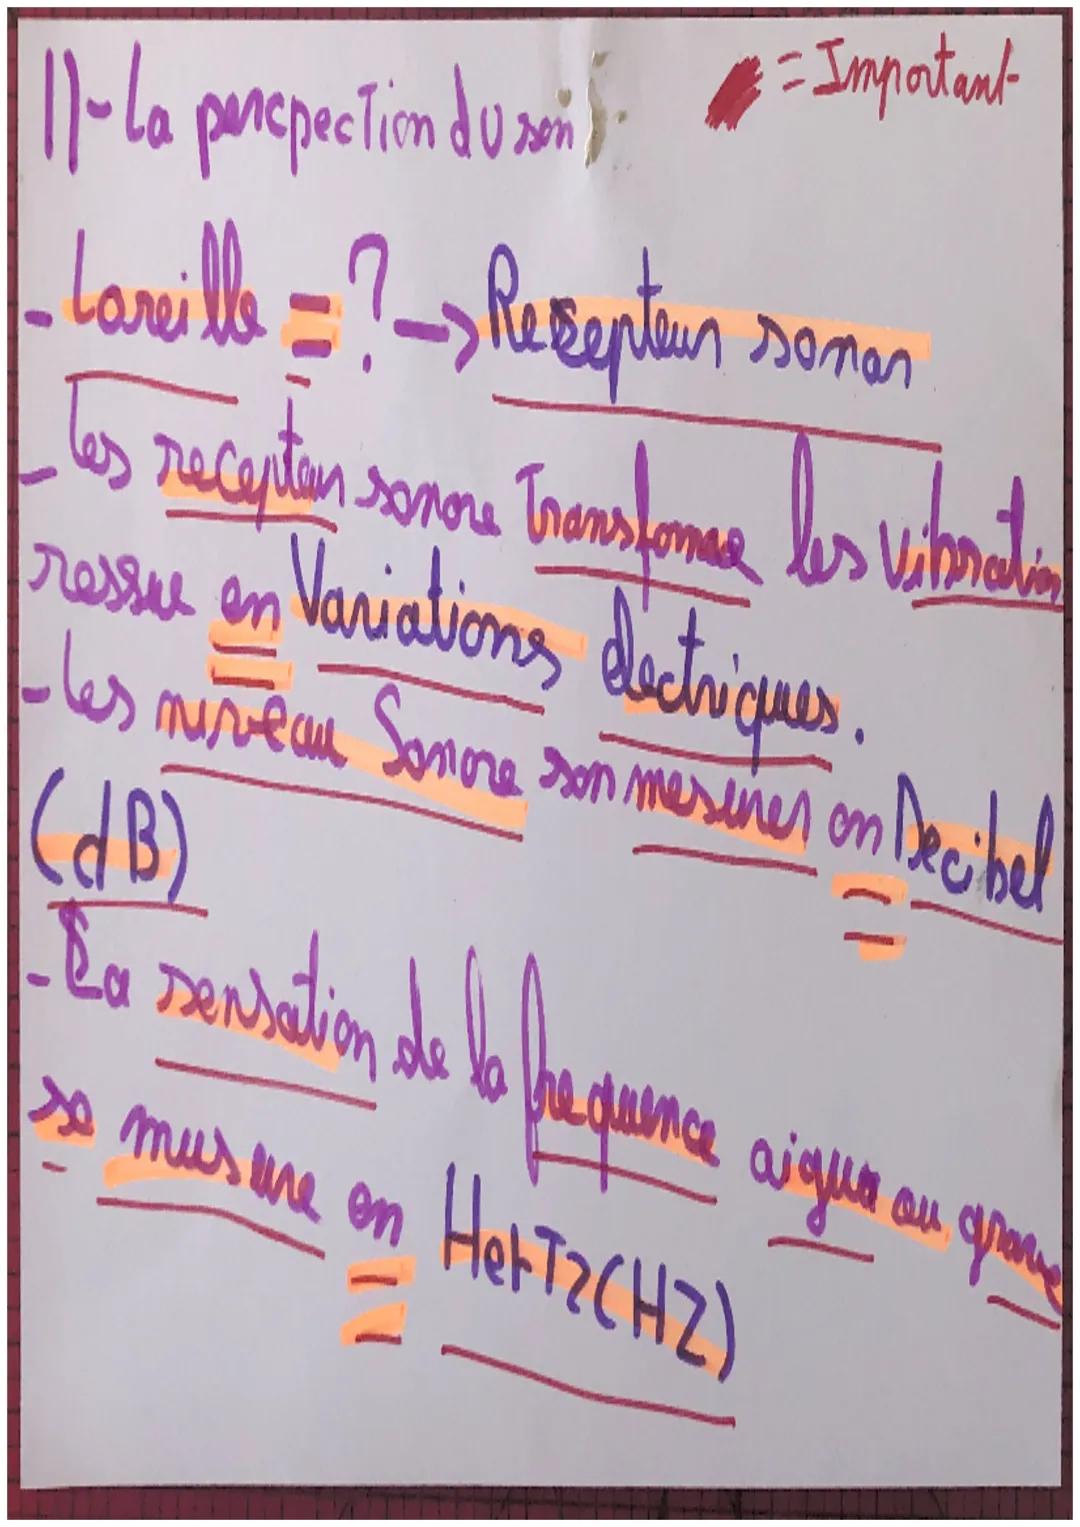 1)-La percpection du son
= Important
- Loreille = ? -> Recepteur sonor
- Les recepteur sonore Transforme les vibration
ressue en Variations electriques.
- Les niveau Sonore son mesurer en Decibel
(dB)
- La sensation de la frequence aigua ou grave
se musure en HertZ (HZ)